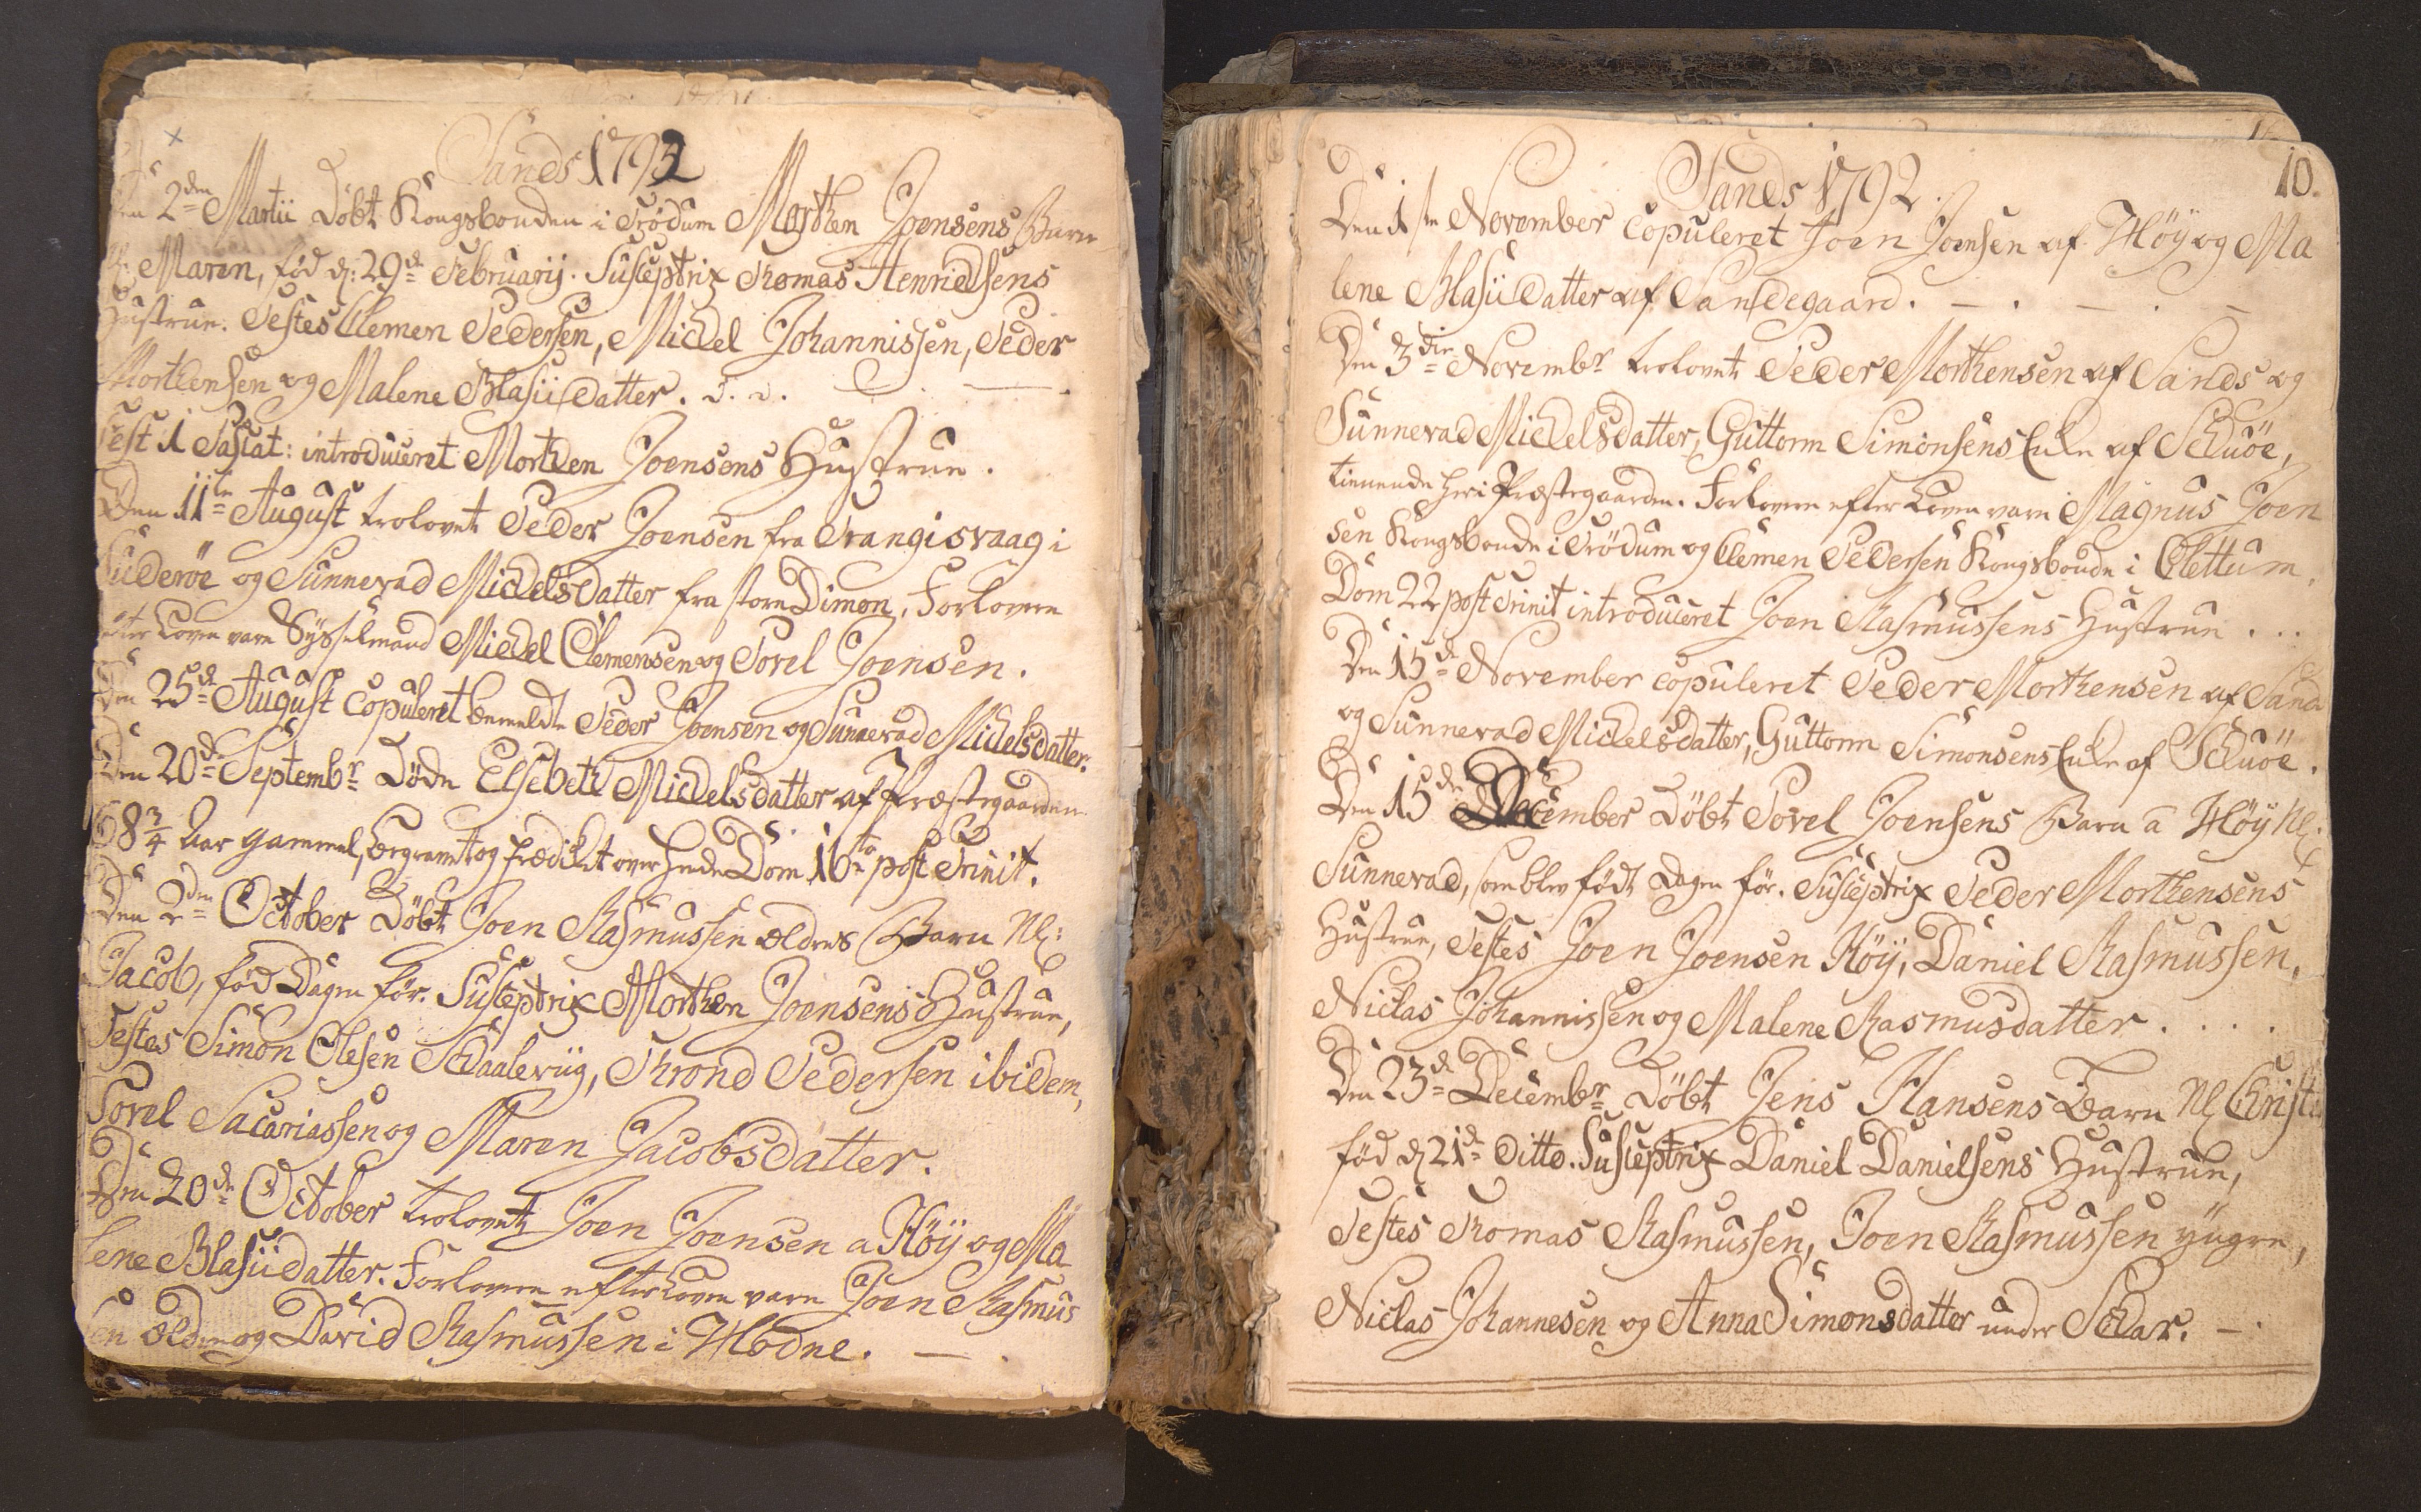 Sands 1792
Den 2den Martii Döbt Kongsbonden i Trödum Morthen Joensens Barn
Nl: Maren, föd d: 29de Februarij. Susceptrix Thomas Henrichsens
Hustrue. Testes Clemen Pedersen, Michel Johannissen, Peder
Morthensen og Malene Blasiidatter.
Fest 1 Pascat: introduceret Morthen Joensens Hustrue.
Den 11te August trolovet Peder Joensen fra Trangisvaag i
Suderöe og Sunnevad Michelsdatter fra store Dimon, Forlovere
efter Loven vare Sysselmand Michel Clemensen og Povel Joensen.
Den 25de August Copuleret bemeldte Peder Joensen og Sunnevad Michelsdatter.
Den 20de Septembr Döde Elsebeth Michelsdatter af Præstegaarden
68 3/4 Aar gammel, begravet og prædiket over hende Dom 16te post Trinit.
Den 2den October Döbt Joen Rasmussen ældres Barn Nl:
Jacob, föd Dagen för. Susceptrix Morthen Joensens Hustrue,
Testes Simon Olesen Schaalevüg, Thrond Pedersen ibidem,
Povel Sacariassen og Maren Jacobsdatter.
Den 20de October trolovet Joen Joensen a Höÿ og Ma
lene Blasiidatter. Forlovere efter Loven vare Joen Rasmus
sen ældre og David Rasmussen i Hodne.
10.
Sands 1792.
Den 1ste November Copuleret Joen Joensen af Höÿ og Ma
lene Blasiidatter af Sandegaard.
Den 3die Novembr trolovet Peder Morthensen af Sands og
Sunnevad Michelsdatter, Guttorm Simonsens Enke af Schuöe,
tienende her i Præstegaarden. Forlovere efter Loven vare Magnus Joen
sen Kongsbonde i Trödum og Clemen Pedersen Kongsbonde i Clettum.
Dom 22 post Trinit introduceret Joen Rasmussens Hustrue...
Den 15de November copuleret Peder Morthensen af Sand
og Sunnevad Michelsdatter, Guttorm Simonsens Enke af Schuöe.
Den 15de December Döbt Povel Joensens Barn a Höÿ Nl:
Sunnevad, som blev födt Dagen för. Susceptrix Peder Morthensens
Hustrue, Testes Joen Joensen Höÿ, Daniel Rasmussen,
Niclas Johannissen og Malene Rasmusdatter....
Den 23de Decembr Döbt Jens Hansens Barn Nl Christ
föd d 21de Ditto. Susceptrix Daniel Danielsens Hustrue,
Testes Thomas Rasmussen, Joen Rasmussen yngre,
Niclas Johannesen og Anna Simonsdatter under Schar.